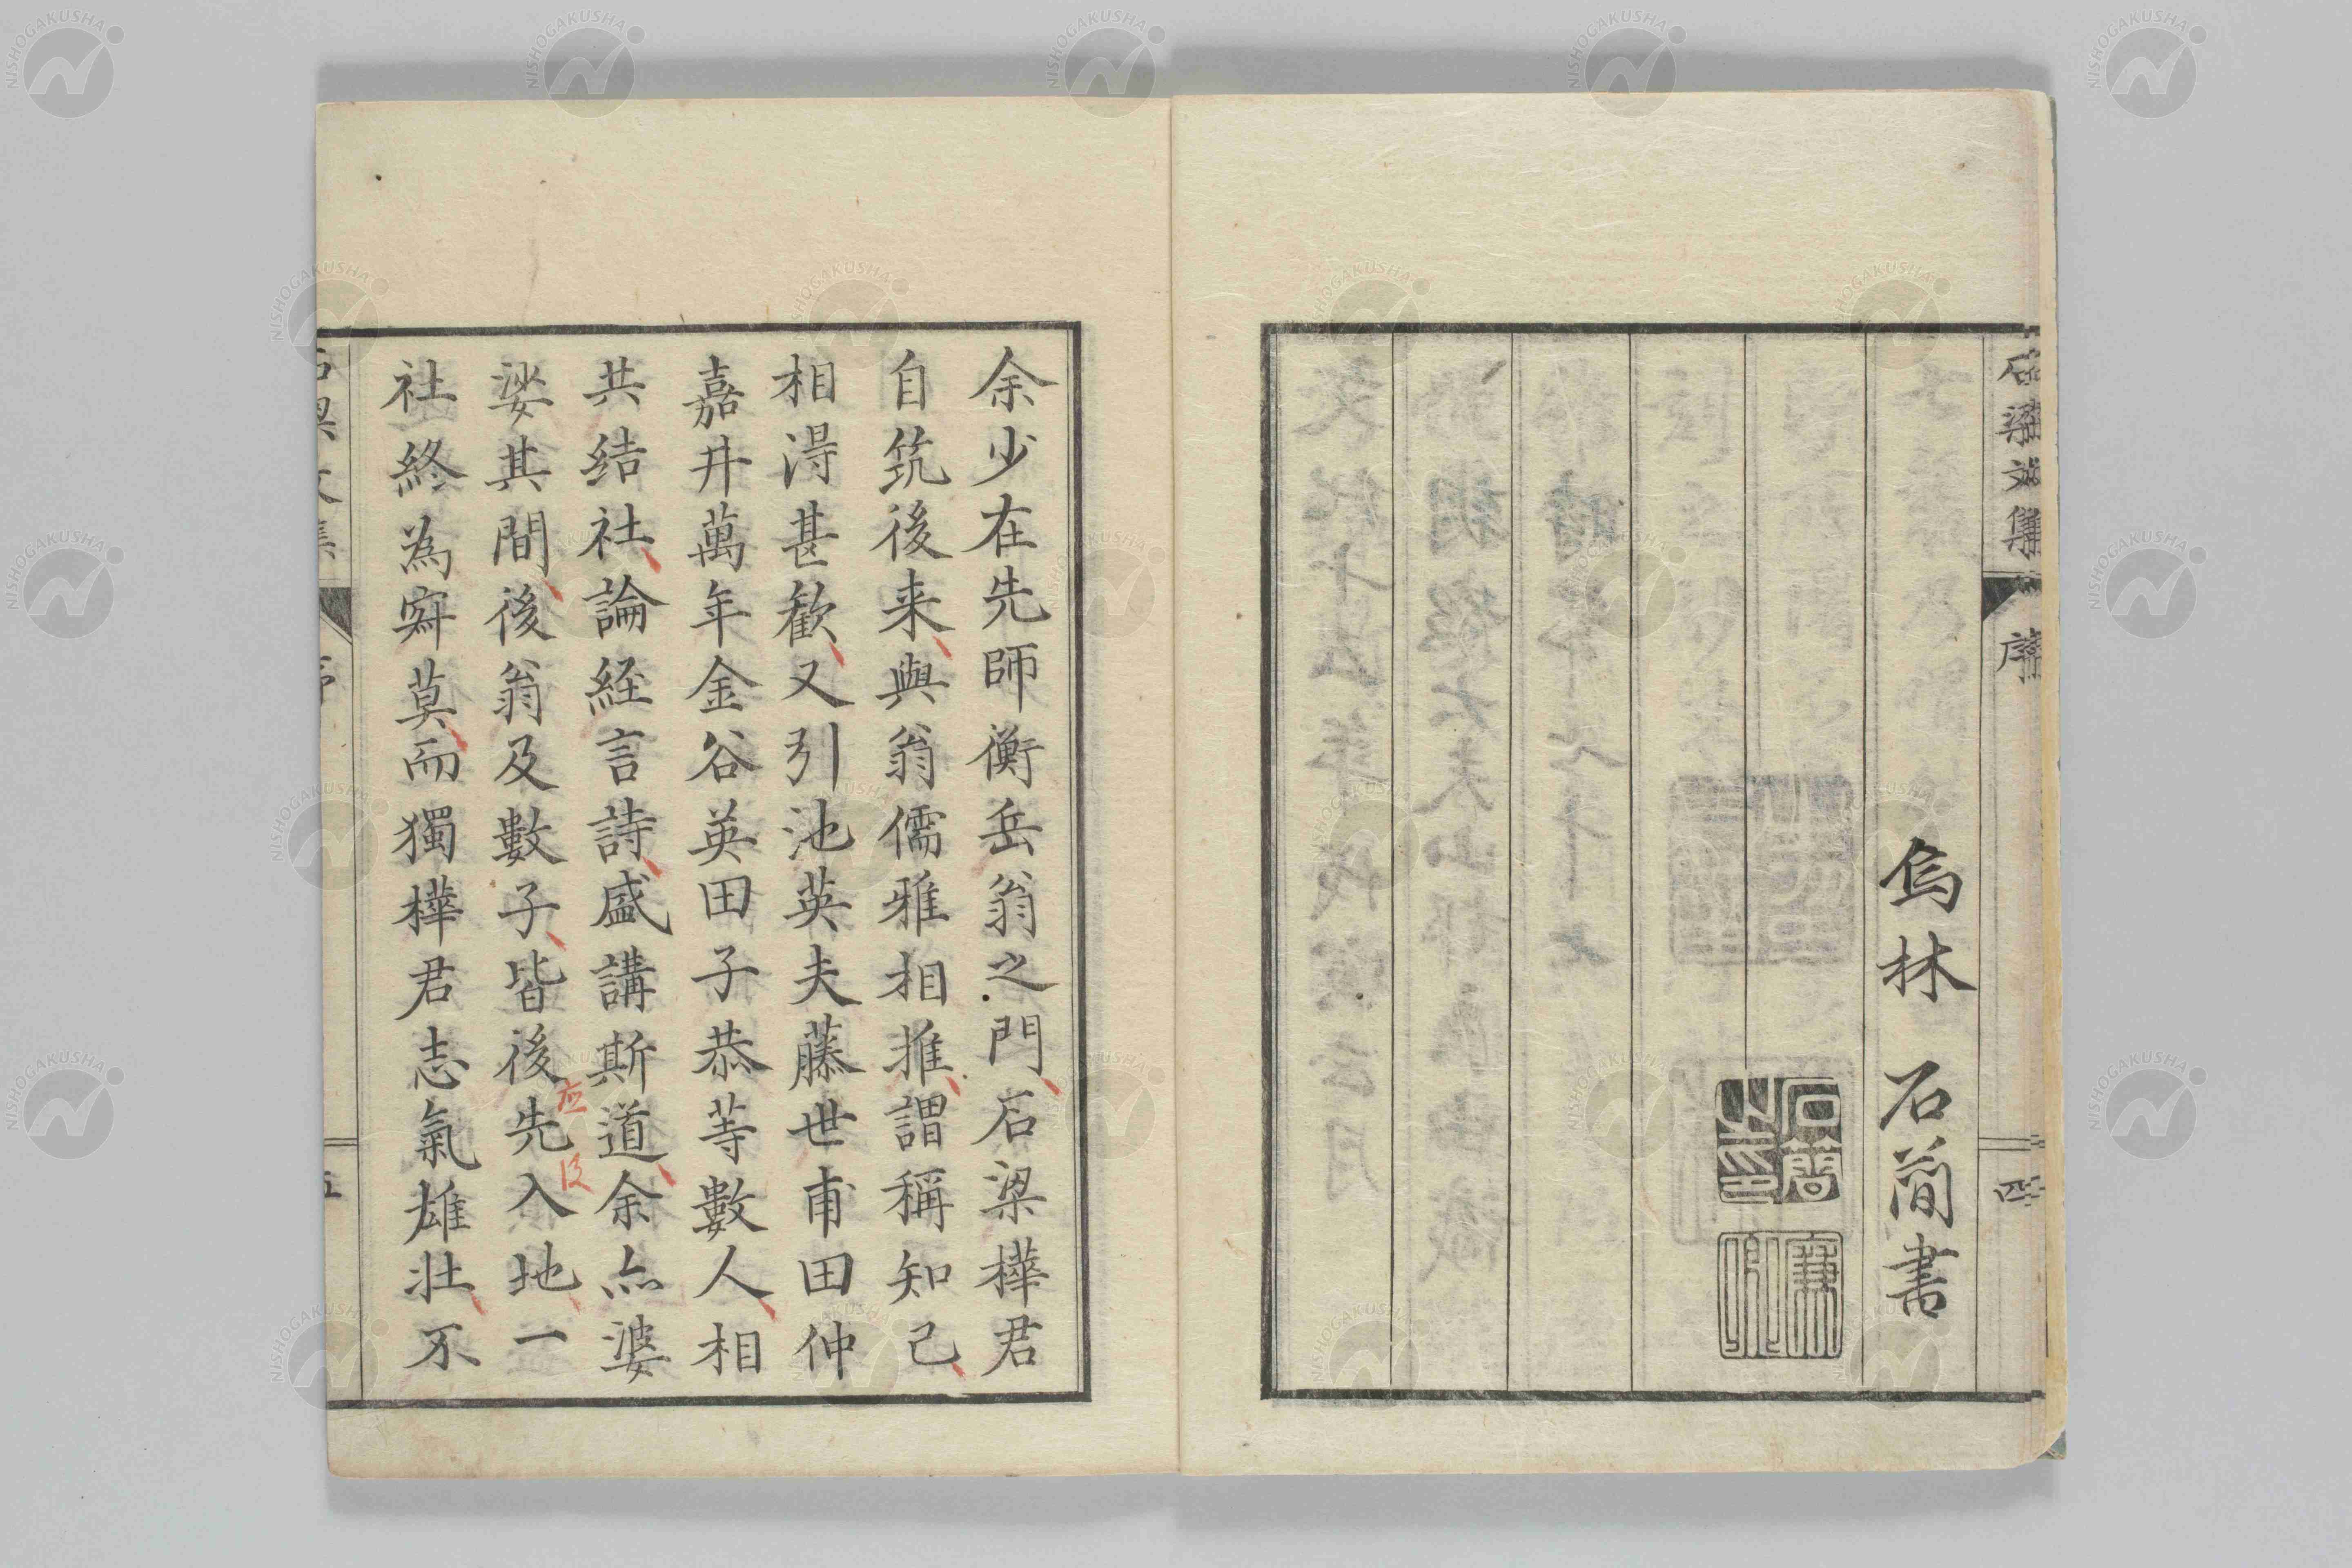 石梁文集
序
四
烏林 石簡書
石簡之印
廉卿
余少在先師衡岳翁之門石梁樺君
自筑後来與翁儒雅相推謂稱知己
相淂甚歡又引池英夫藤世甫田仲
嘉井萬年金谷英田子恭等數人相
共结社論経言詩盛講斯道余亦婆
娑其間後翁及數子皆後先入地一
社終為寂莫而獨樺君志氣雄壯不
NISHOGAKUSHA